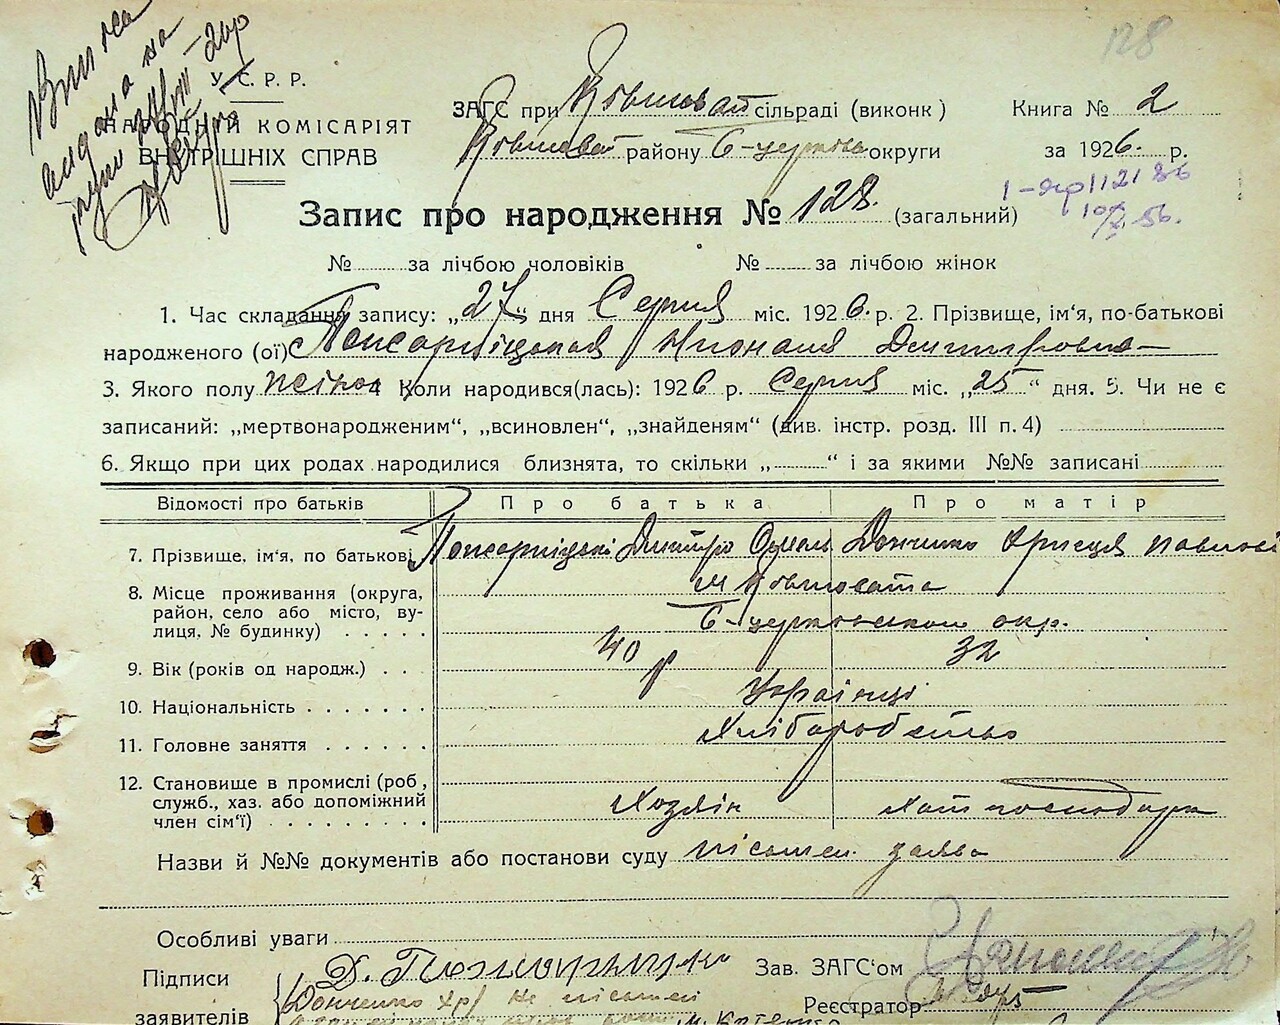 128
Випис
видана на
У. С. Р. Р.
НАРОДНІЙ КОМІСАРІЯТ
ВНУТРІШНІХ СПРАВ
ЗАГС при Ківшоват сільраді (виконк)
Ківшоват району Б-церков округи
Книга № 2
за 1926. р.
10/X 56.
Запис про народження № 128. (загальний)
№ за лічбою чоловіків № за лічбою жінок
1. Час складання запису: „27“ дня Серпня міс. 1926. р. 2. Прізвище, ім'я, по-батькові
народженого (ої) Дмитровна
3. Якого полу жіноч Коли народився(лась): 1926 р. Серпня міс. „25“ дня. 5. Чи не є
записаний: „мертвонародженим“, „всиновлен“, „знайденям“ (див. інстр. розд. III п. 4)
6. Якщо при цих родах народилися близнята, то скільки „ “ і за якими №№ записані
Відомості про батьків Про батька Про матір
7. Прізвище, ім'я, по батькові Дмитро Омель Донченко Хрисця Павлові
8. Місце проживання (округа, м Ківшовата
район, село або місто, ву-
лиця, № будинку) Б-церковської окр.
9. Вік (років од народж.) 40 р 32
10. Національність Українці
11. Головне заняття Хліборобство
12. Становище в промислі (роб,
служб., хаз. або допоміжний Хозяін хат господарка
член сім'ї)
Назви й №№ документів або постанови суду письмен. заява
Особливі уваги
Підписи Д. Зав. ЗАГС'ом
заявителів Донченко Хр не письмен Реєстратор